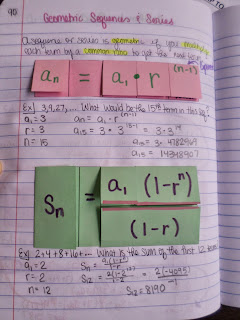 90
Geometric Sequences & Series
A sequence or series is geometric if you multiply
each term by a common ratio to get the next term.
aₙ = a₁ • r⁽ⁿ⁻¹⁾
Ex| 3, 9, 27, .... What would be the 15th term in this seq?
a₁ = 3 aₙ = a₁ · r⁽ⁿ⁻¹⁾
r = 3 a₁₅ = 3 · 3¹⁵⁻¹ = 3 · 3¹⁴
n = 15 a₁₅ = 3 · 4782969
a₁₅ = 14348907
Sₙ = a₁ (1-rⁿ) / (1-r)
Ex| 2+4+8+16+... What is the sum of the first 12 terms
a₁ = 2 Sₙ = a₁(1-rⁿ) / 1-r
r = 2 S₁₂ = 2(1-2¹²) / 1-2 = 2(-4095) / -1
n = 12 S₁₂ = 8190